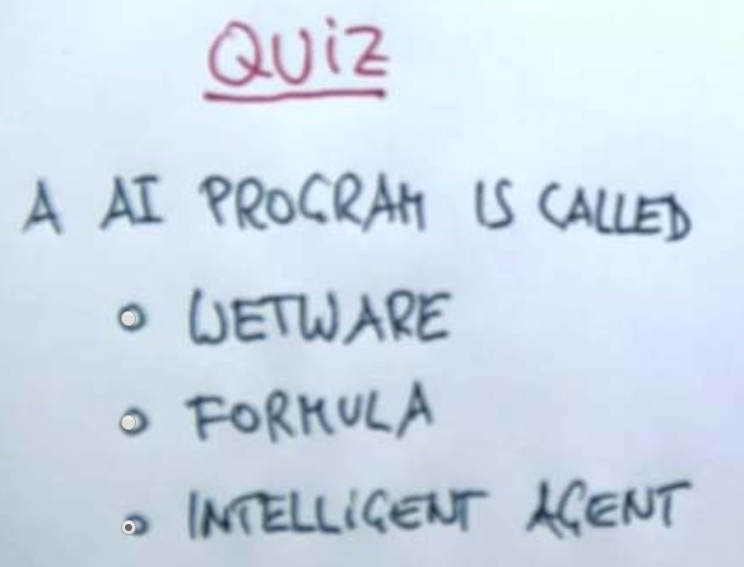 QUiZ
A AI PROGRAM IS CALLED
WETWARE
FORMULA
INTELLiGENT AGENT